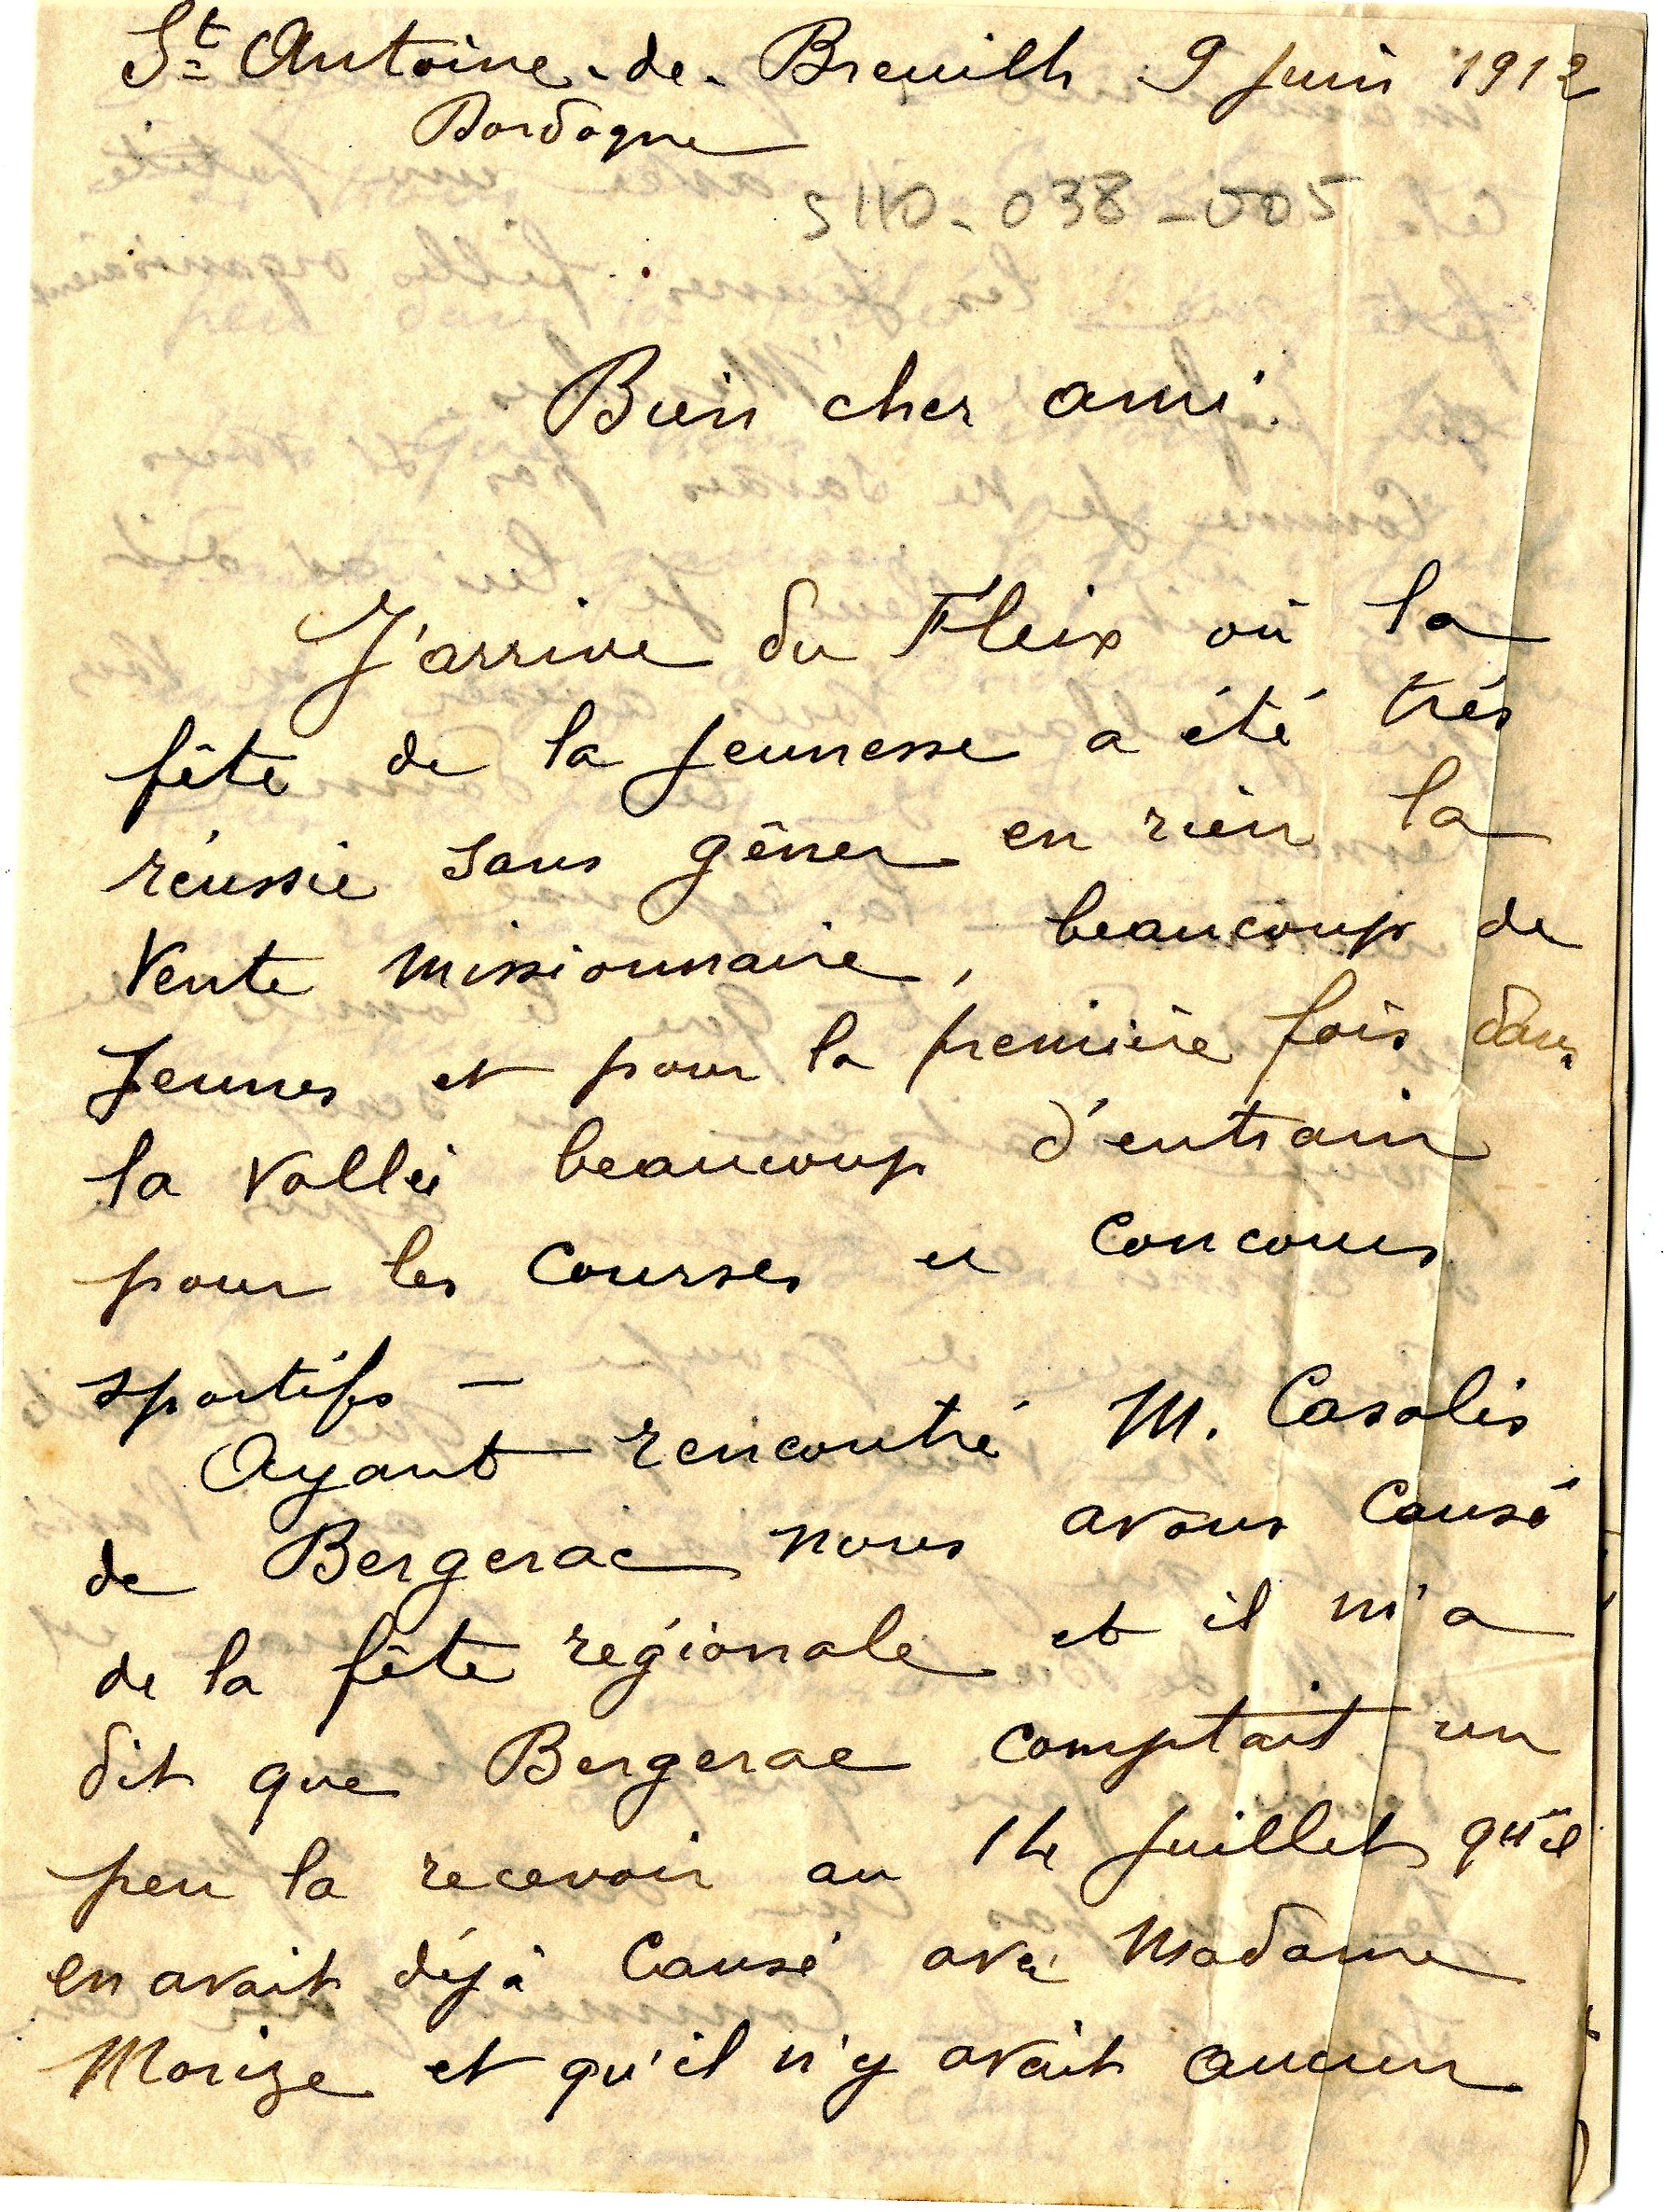 St Antoine-de-Breuilh 9 Juin 1912
Dordogne
5110-038-005
Bien cher ami
J'arrive du Fleix où la
fête de la Jeunesse a été très
réussie sans gêner en rien la
Vente missionnaire, beaucoup de
Jeunes et pour la première fois dans
la Vallée beaucoup d'entrain
pour les Courses et Concours
sportifs —
Ayant rencontré M. Casalis
de Bergerac nous avons Causé
de la fête régionale et il m'a
dit que Bergerac comptait un
peu la recevoir au 14 Juillet qu'il
en avait déjà Causé avec Madame
Morize et qu'il n'y avait aucun